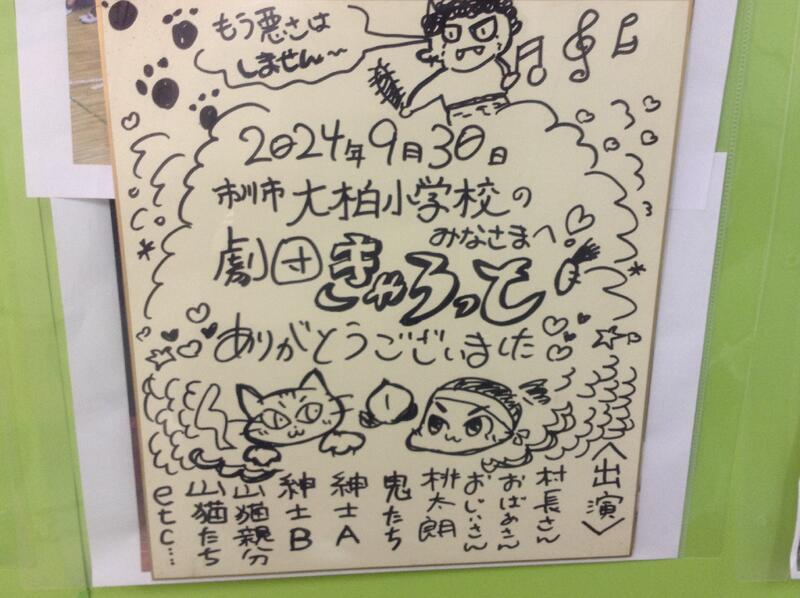 もう悪さは
しません〜
2024年9月30日
市川市 大柏小学校の
みなさまへ!
劇団きゃろっと
ありがとうございました
〈出演〉
村長さん
おばあさん
おじいさん
桃太朗
鬼たち
紳士A
紳士B
山猫親分
山猫たち
etc…